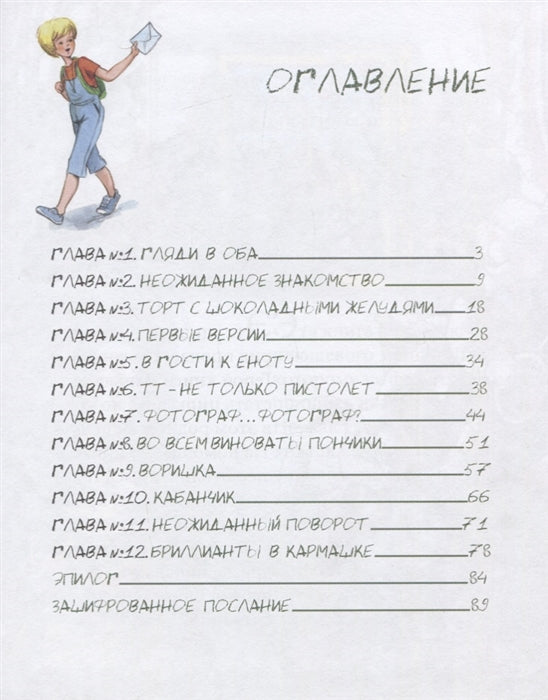 ОГЛАВЛЕНИЕ
ГЛАВА №1. ГЛЯДИ В ОБА 3
ГЛАВА №2. НЕОЖИДАННОЕ ЗНАКОМСТВО 9
ГЛАВА №3. ТОРТ С ШОКОЛАДНЫМИ ЖЕЛУДЯМИ 18
ГЛАВА №4. ПЕРВЫЕ ВЕРСИИ 28
ГЛАВА №5. В ГОСТИ К ЕНОТУ 34
ГЛАВА №6. ТТ - НЕ ТОЛЬКО ПИСТОЛЕТ 38
ГЛАВА №7. ФОТОГРАФ... ФОТОГРАФ? 44
ГЛАВА №8. ВО ВСЕМ ВИНОВАТЫ ПОНЧИКИ 51
ГЛАВА №9. ВОРИШКА 57
ГЛАВА №10. КАБАНЧИК 66
ГЛАВА №11. НЕОЖИДАННЫЙ ПОВОРОТ 71
ГЛАВА №12. БРИЛЛИАНТЫ В КАРМАШКЕ 78
ЭПИЛОГ 84
ЗАШИФРОВАННОЕ ПОСЛАНИЕ 89